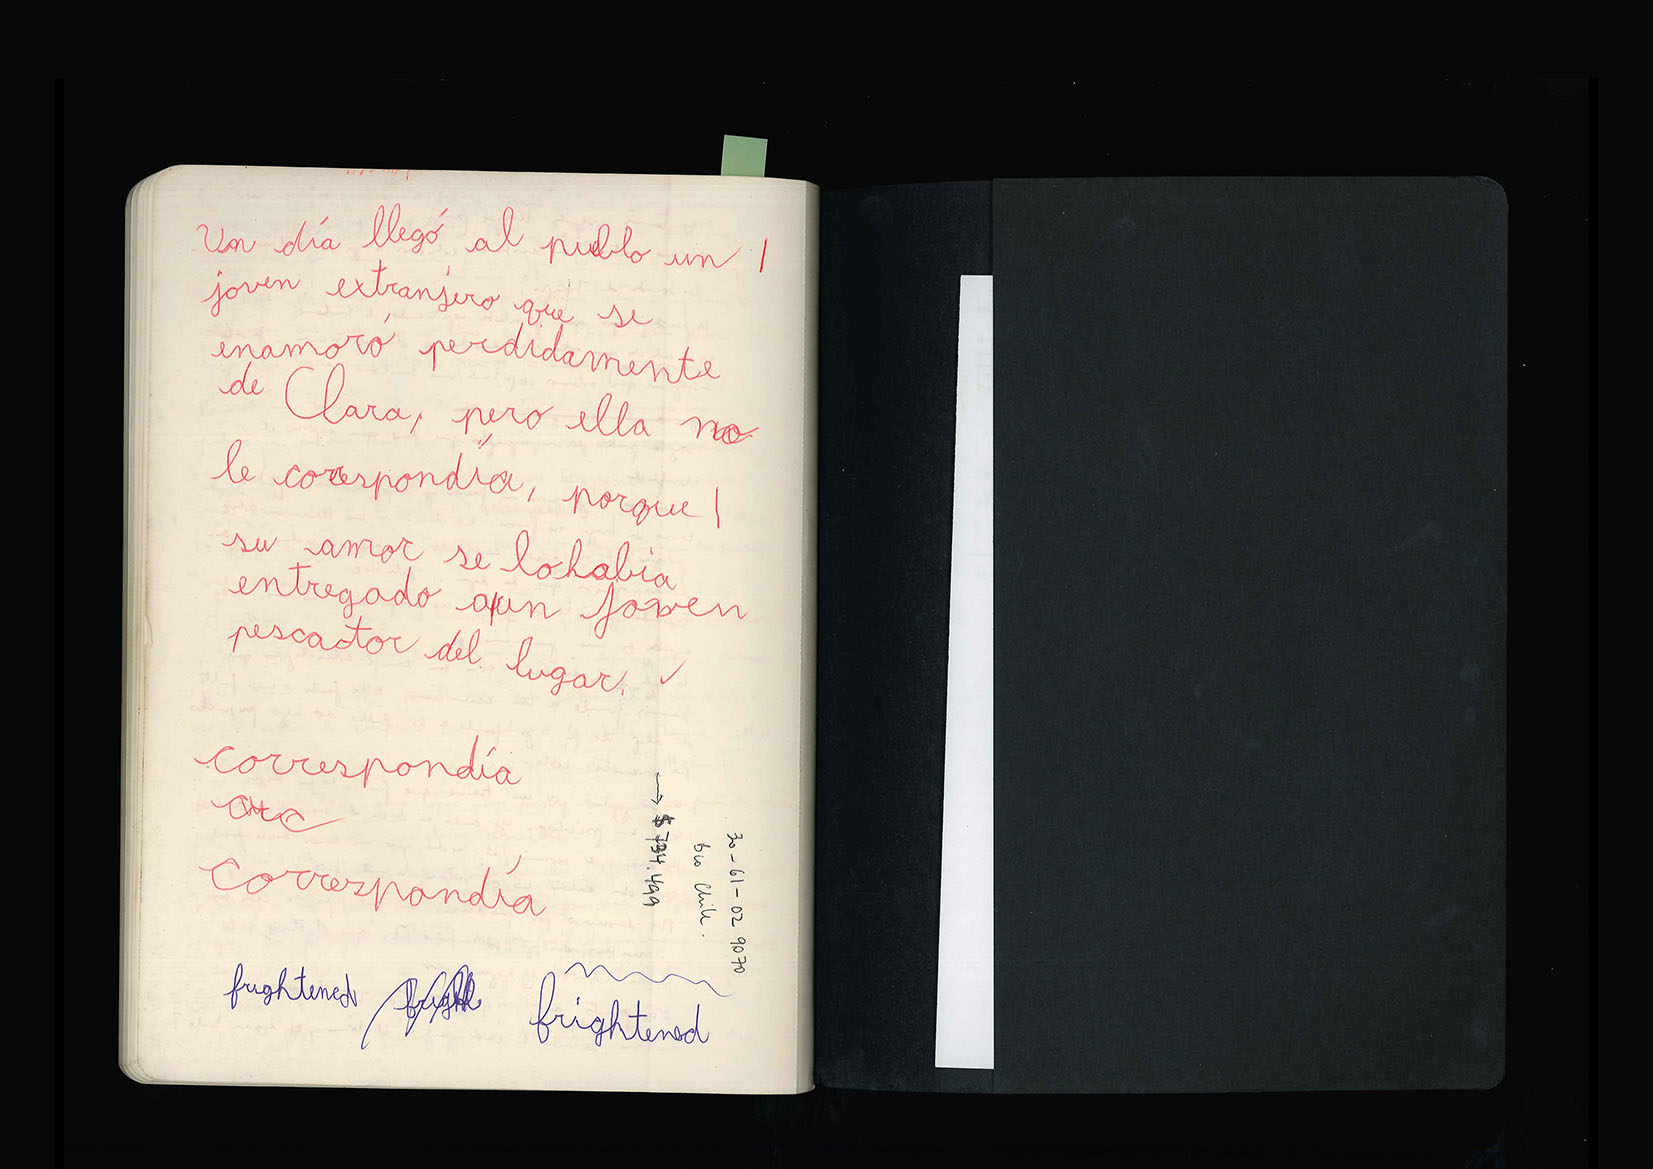 Un día llegó al pueblo un /
joven extranjero que se
enamoró perdidamente
de Clara, pero ella no
le corespondía, porque /
su amor se lo había
entregado a/un joven
pescador del lugar. ✓
correspondía
correspondía
→ $734.499
Bco Chile.
30-61-02 9070
frightened
frightened